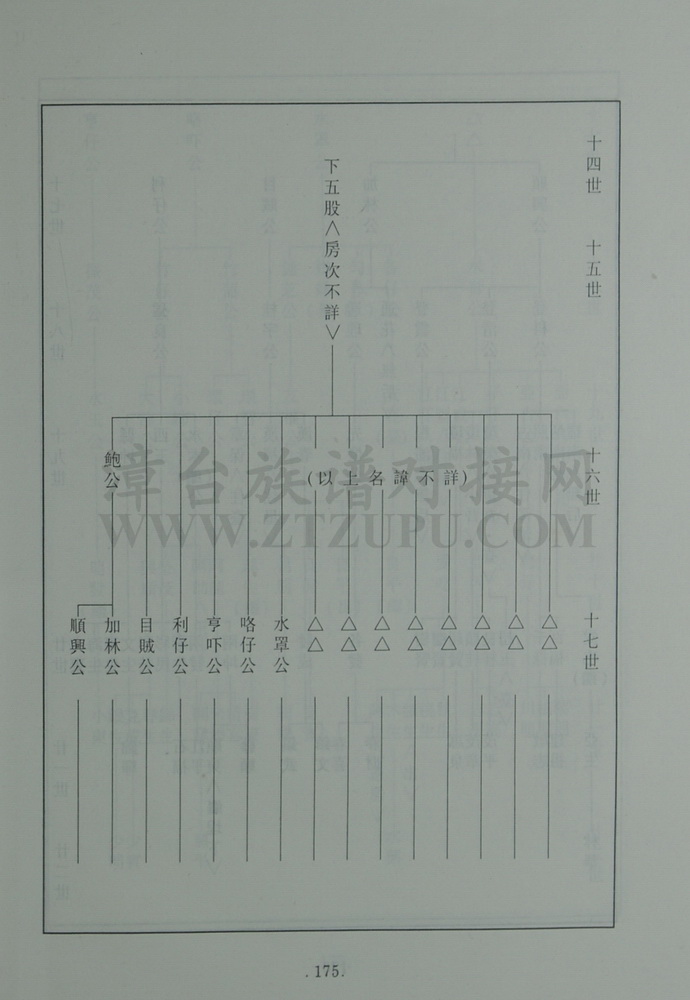 十四世
十五世
十六世
十七世
下五股︿房次不詳﹀
(以上名諱不詳)
鮑公
△△
△△
△△
△△
△△
△△
△△
△△
水罩公
咯仔公
亨吓公
利仔公
目賊公
加林公
順興公
漳台族谱对接网
WWW.ZTZUPU.COM
.175.